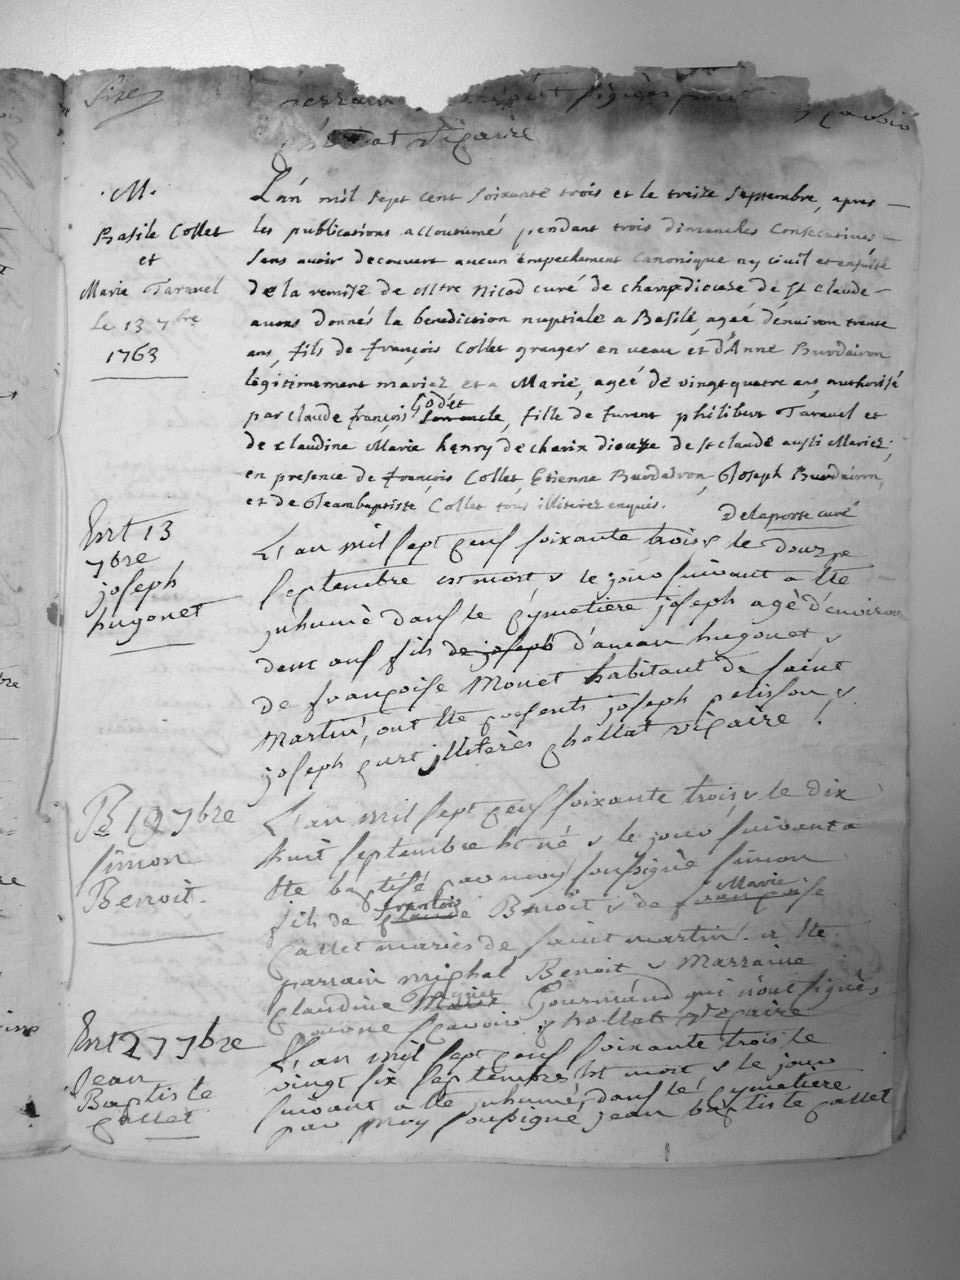 parrain et signés pour scavoir
chollat vicaire
.M.
Basile Collet
et
Marie Taravel
le 13 7bre
1763
L'an mil sept cent soixante trois et le treize septembre, apres
les publications accoutumés pendant trois dimanches consecutives
sans avoir decouvert aucun empechement canonique ny civil et ensuite
de la remise de Mtre Nicod curé de champdiocese de st claude
avons donnés la benediction nuptiale a Basile, ageé d'environ trente
ans, fils de françois Collet granger en veau et d'Anne Burdairon
légitimement mariez et a Marie, ageé de vingt quatre ans, authorisé
godet
par claude françois, fille de furent philibert Taravel et
de claudine Marie henry de charix diocese de st claude aussi Mariez;
en presence de françois Collet, Etienne Burdairon, Joseph Burdairon,
et de Jeambaptiste Collet tous illiterez enquis.
Delaporte curé
Ent 13
7bre
joseph
hugonet
L'an mil sept cens soixante trois & le douze
septembre est mort & le jour suivant a ete
inhumé dans le cymetière joseph agè d'environ
deux ans fils de joseph d'aucan hugonet &
de françoise Monet habitant de saint
Martin, ont ete presents joseph pelisson &
joseph curt illiterès chollat vicaire
B 19 7bre
simon
Benoit.
L'an mil sept cens soixante trois & le dix
huit septembre est né & le jour suivant a
ete baptisé par moy soussigné simon
françois Marie
fils de claude Benoit & de françoise
Callet mariés de saint martin. a ete
parrain michal Benoit & Marraine
claudine Marie Gourmand qui n'ont signés
pour ne scavoir chollat vicaire
Ent 27 7bre
Jean
Baptiste
Callet
L'an mil sept cens soixante trois, le
vingt six septembre est mort & le jour
suivant a ete inhumé, dans le cymetière
par moy soussigné jean baptiste callet